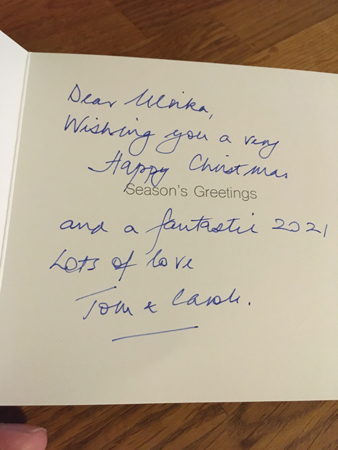 Dear Ulrika,
Wishing you a very
Happy Christmas
Season's Greetings
and a fantastic 2021
Lots of love
Tom & Carole.